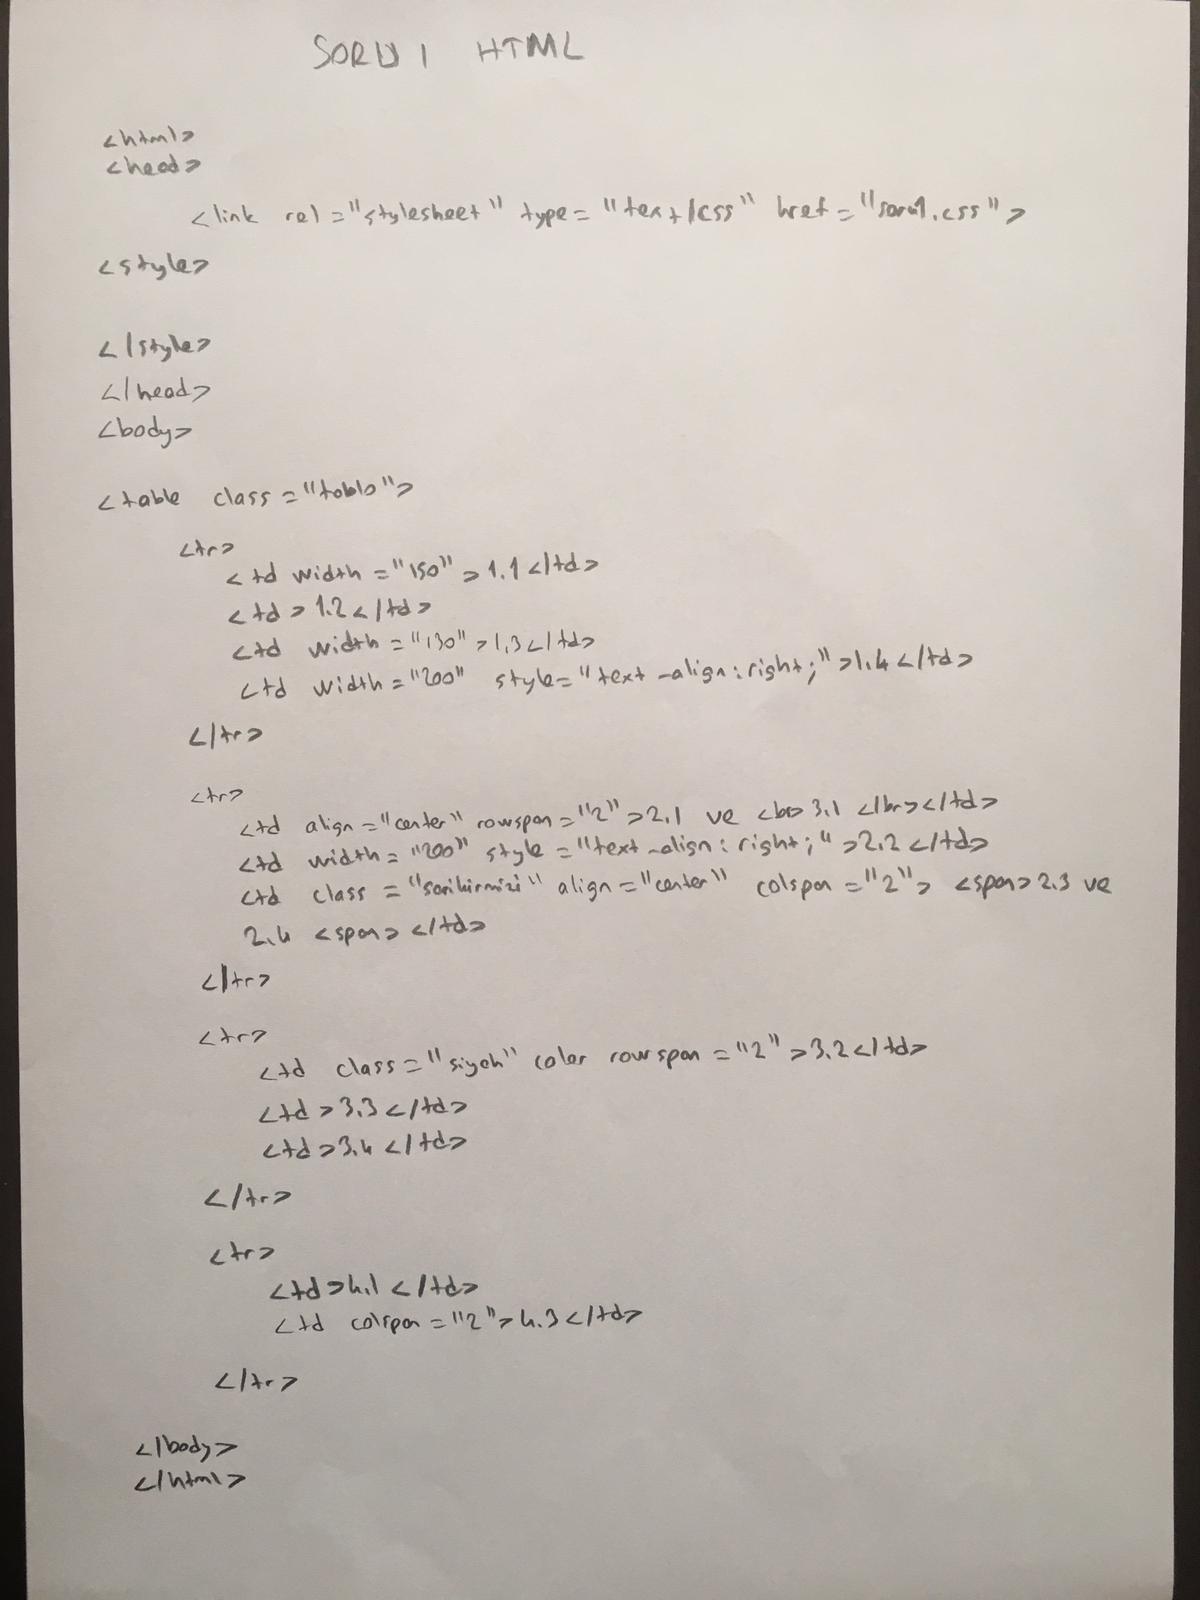 SORU 1 HTML
<html>
<head>
<link rel="stylesheet" type="text/css" href="soru1.css">
<style>
</style>
</head>
<body>
<table class="tablo">
<tr>
<td width="150">1.1</td>
<td>1.2</td>
<td width="130">1.3</td>
<td width="200" style="text-align:right;">1.4</td>
</tr>
<tr>
<td align="center" rowspan="2">2.1 ve 3.1 </br></td>
<td width="200" style="text-align:right;">2.2</td>
<td class="sarikirmizi" align="center" colspan="2"> <span>2.3 ve
2.4 <span> </td>
</tr>
<tr>
<td class="siyah" color rowspan="2">3.2</td>
<td>3.3</td>
<td>3.4</td>
</tr>
<tr>
<td>4.1</td>
<td colspan="2">4.3</td>
</tr>
</body>
</html>